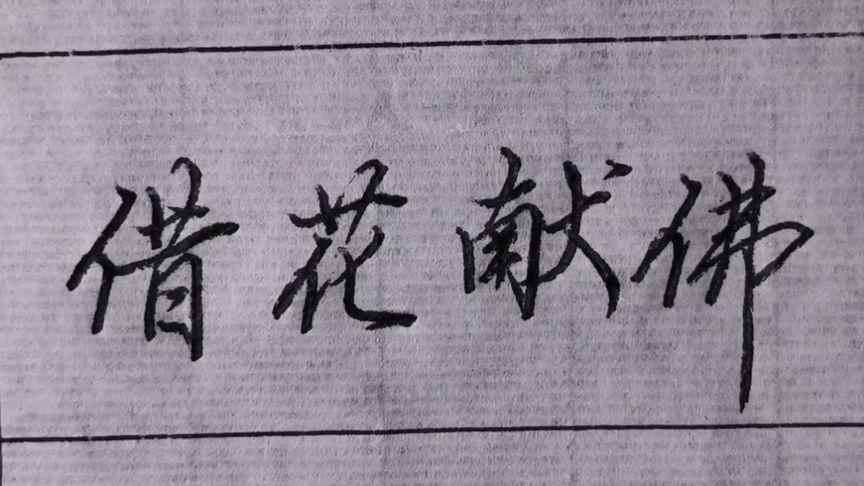 借花献佛